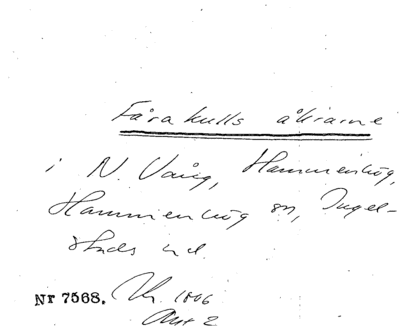 Fårakulls åkrarne
i N. Vång, Hammenhög,
Hammenhög sn, Ingel-
stads hd.
Nr 7568. 1806
Akt 2